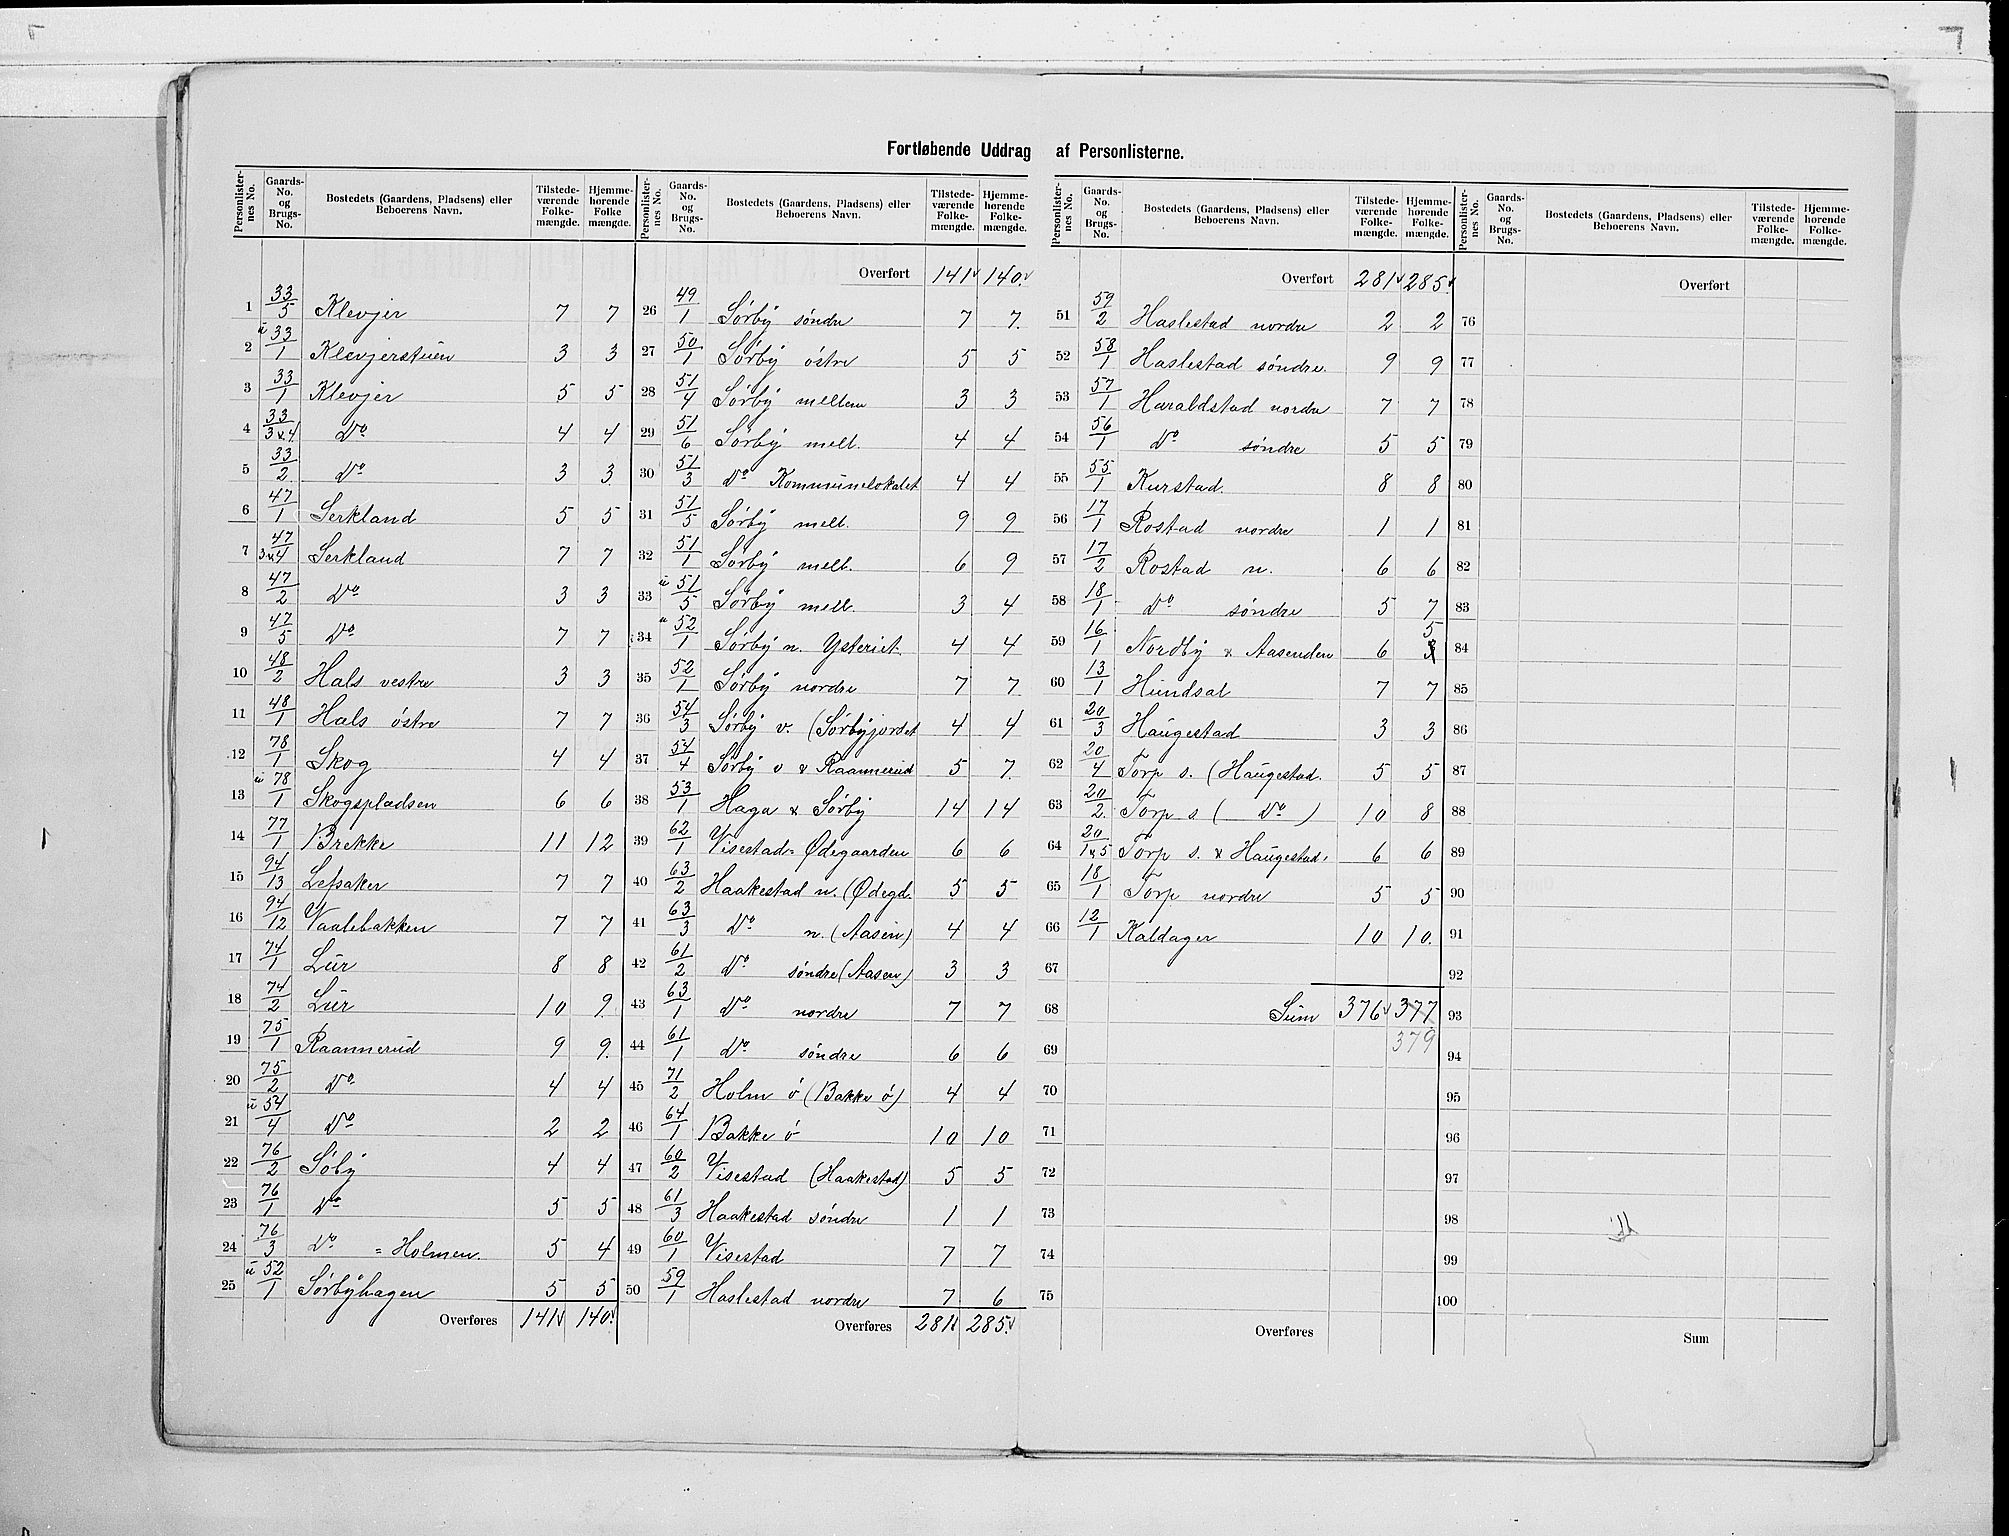 Fortløbende Uddrag af Personlisterne.
Personlister-nes No. Gaards-No. og Brugs-No. Bostedets (Gaardens, Pladsens) eller Beboerens Navn. Tilstede-værende Folke-mængde. Hjemme-hørende Folke mængde.
1 33/5 Klevjer 7 7
2 u 33/1 Klevjerstuen 3 3
3 33/1 Klevjer 5 5
4 33/3 & 4 Do 4 4
5 33/2 Do 3 3
6 47/1 Serkland 5 5
7 47/3 & 4 Serkland 7 7
8 47/2 Do 3 3
9 47/5 Do 7 7
10 48/2 Hals vestre 3 3
11 48/1 Hals östre 7 7
12 78/1 Skog 4 4
13 u 78/1 Skogspladsen 6 6
14 77/1 Brekke 11 12
15 94/13 Lefsaker 7 7
16 94/12 Vaalebakken 7 7
17 74/1 Lur 8 8
18 74/2 Lur 10 9.
19 75/1 Raannerud 9 9.
20 75/2 Do 4 4
21 u 54/4 Do 2 2
22 76/2 Söby 4 4
23 76/1 Do 5 5
24 76/3 Do = Holmen. 5 4
25 u 52/1 Sørbyhagen 5 5
Overføres 141 140.
Personlister-nes No. Gaards-No. og Brugs-No. Bostedets (Gaardens, Pladsens) eller Beboerens Navn. Tilstede-værende Folke-mængde. Hjemme-hørende Folke-mængde.
Overført 141 140.
26 49/1 Sørby søndre 7 7.
27 50/1 Sørby østre 5 5
28 51/4 Sørby mellem 3 3
29 51/6 Sørby mell. 4 4
30 51/3 Do Kommunelokalet 4 4
31 51/5 Sørby mell. 9 9
32 51/1 Sørby mell. 6 9
33 u 51/5 Sørby mell. 3 4
34 u 52/1 Sørby n. Ysteriet. 4 4
35 52/1 Sørby nordre 7 7
36 54/3 Sørby v. (Sørbyjordet 4 4
37 54/4 Sørby v & Raannerud 5 7.
38 53/1 Haga & Sørby 14 14
39 62/1 Visestad= Ødegaarden 6 6
40 63/2 Haakestad n. (Ødegd. 5 5
41 63/3 Do n. (Aasen) 4 4
42 61/2 Do søndre (Aasen) 3 3
43 63/1 Do nordre 7 7
44 61/1 Do søndre 6 6
45 71/2 Holm ö (Bakke ö) 4 4
46 64/1 Bakke ö 10 10
47 60/2 Visestad (Haakestad) 5 5
48 61/3 Haakestad søndre 1 1
49 60/1 Visestad 7 7
50 59/1 Haslestad nordre 7 6
Overføres 281 285.
Personlister-nes No. Gaards-No. og Brugs-No. Bostedets (Gaardens, Pladsens) eller Beboerens Navn. Tilstede-værende Folke-mængde. Hjemme-hørende Folke-mængde.
Overført 281 285.
51 59/2 Haslestad nordre 2 2
52 58/1 Haslestad søndre. 9 9
53 57/1 Haraldstad nordre 7 7
54 56/1 Do søndre 5 5
55 55/1 Kurstad. 8 8
56 17/1 Rostad nordre 1 1
57 17/2 Rostad n. 6 6
58 18/1 Do søndre 5 7
59 16/1 Nordby & Aasenden 6 5
60 13/1 Hundsal 7 7
61 20/3 Haugestad 3 3
62 20/4 Torp s. (Haugestad. 5 5
63 20/2. Torp s ( Do ) 10 8
64 20/1 & 5 Torp s. & Haugestad. 6 6
65 18/1 Torp nordre 5 5
66 12/1 Kaldager 10 10.
67
68 Sum 376 377
69 379
70
71
72
73
74
75
Overføres
Personlister-nes No. Gaards-No. og Brugs-No. Bostedets (Gaardens, Pladsens) eller Beboerens Navn. Tilstede-værende Folke-mængde. Hjemme-hørende Folke-mængde.
Overført
76
77
78
79
80
81
82
83
84
85
86
87
88
89
90
91
92
93
94
95
96
97
98
99
100
Sum